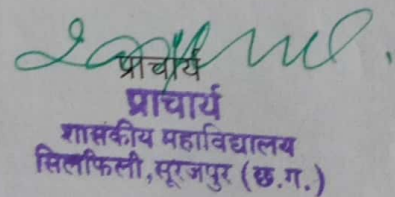 प्राचार्य
प्राचार्य
शासकीय महाविद्यालय
सिलफिली,सूरजपुर (छ.ग.)